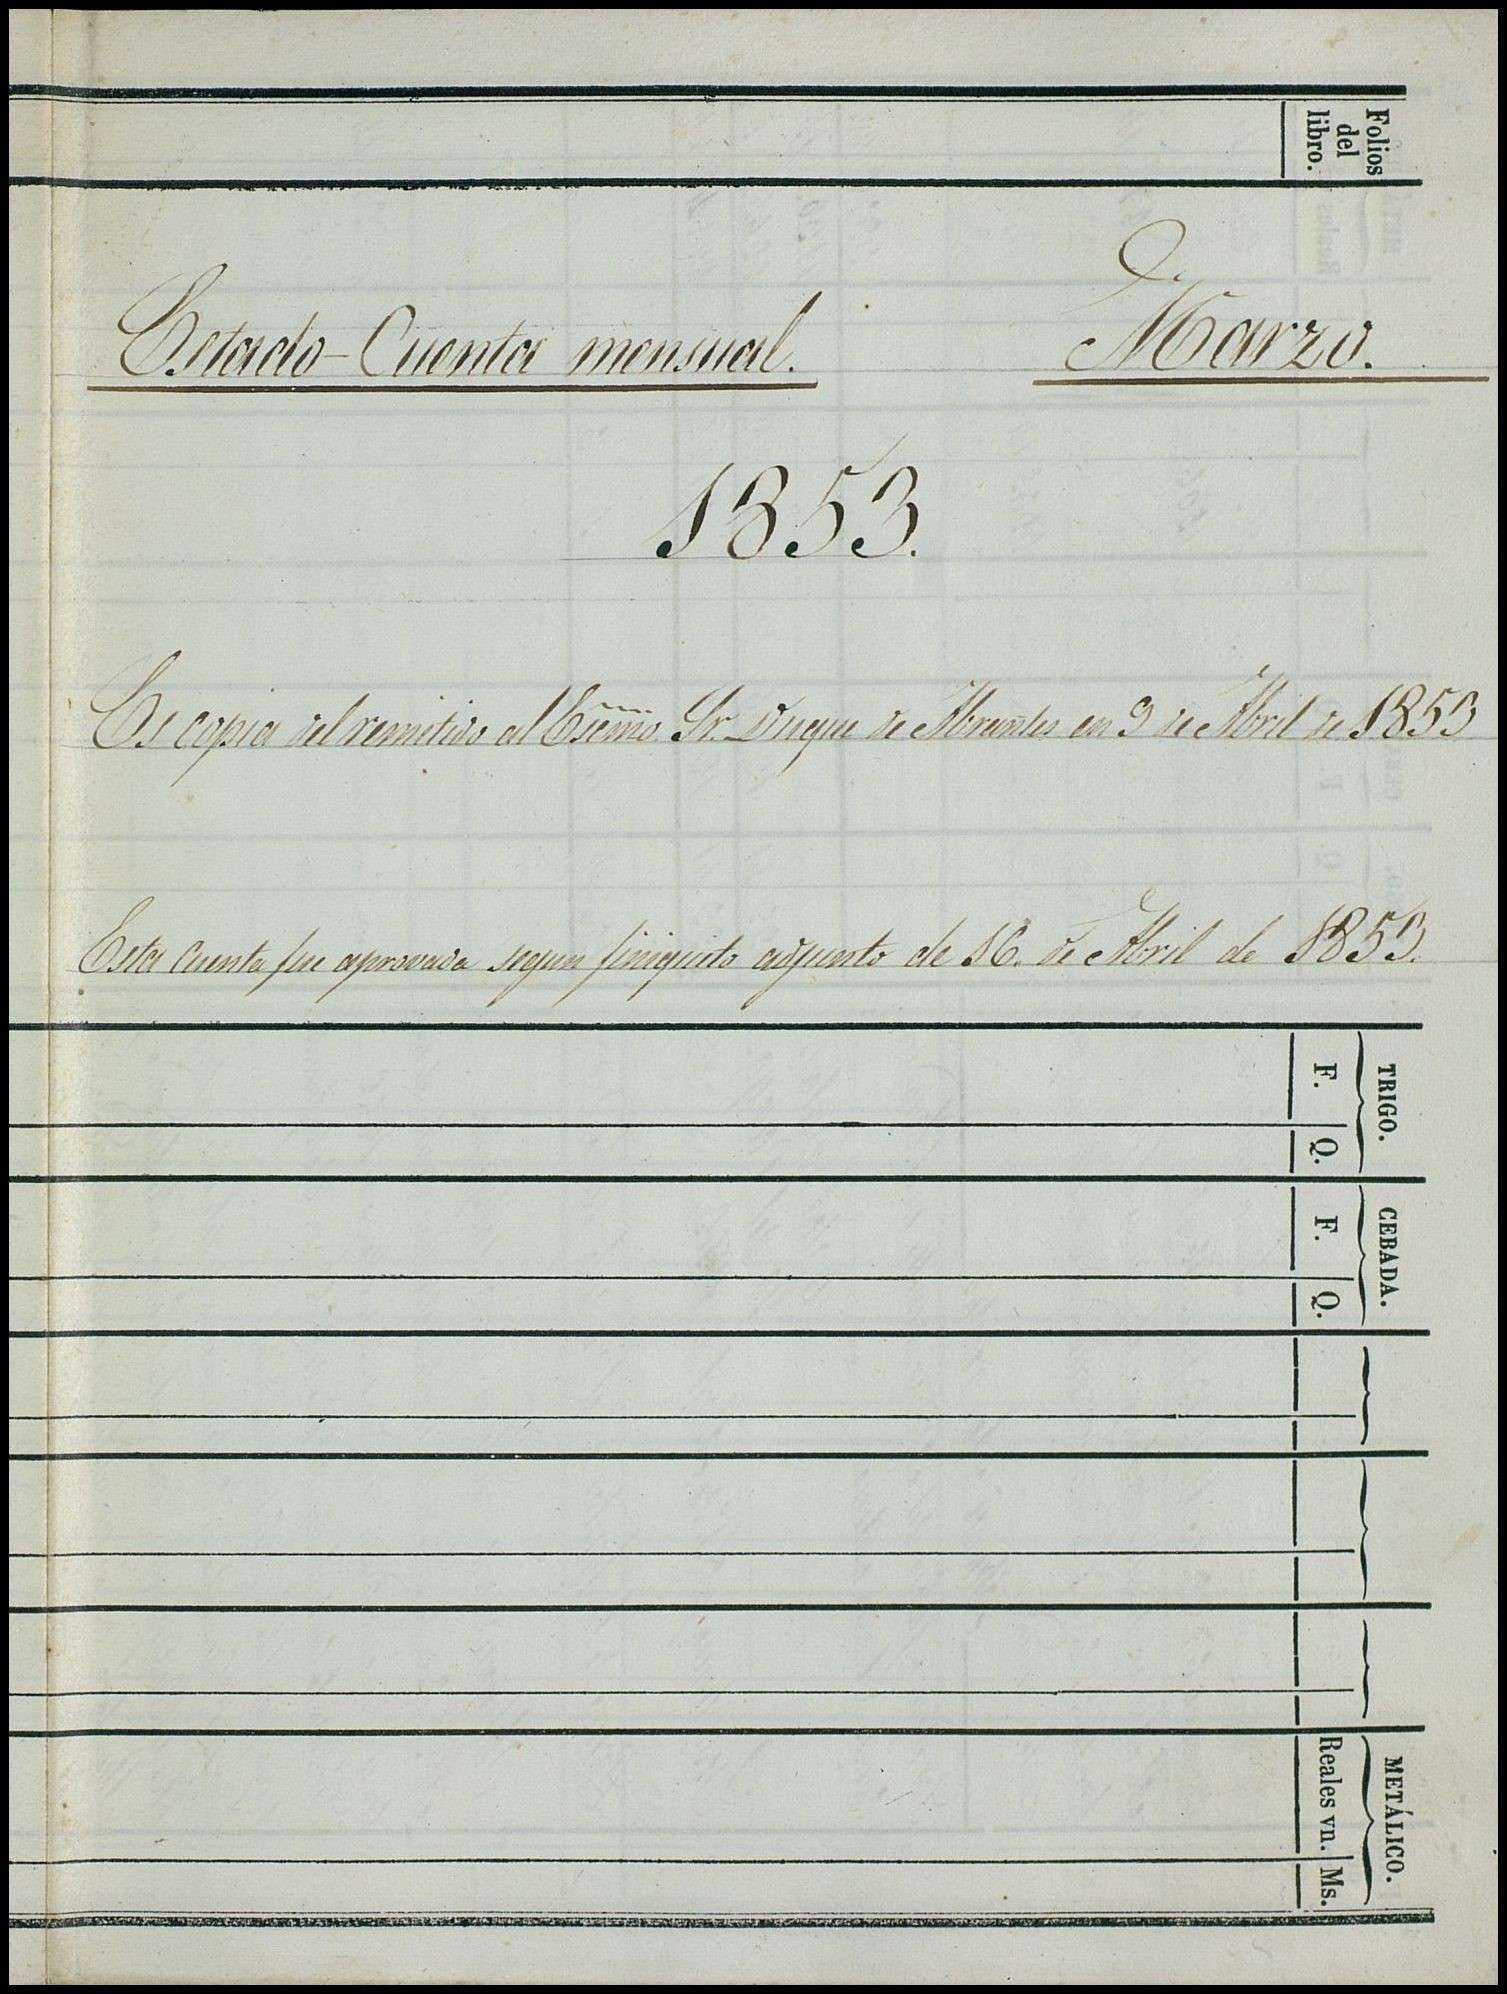 Folios
del
libro.
Estado-Cuenta mensual.
Marzo.
1853.
Es copia del remitido al Excmo. Sr. Duque de Abrantes en 9 de Abril de 1853
Esta cuenta fue aprovada segun finiquito adjunto de 16. de Abril de 1853.
TRIGO.
F. Q.
CEBADA.
F. Q.
METÁLICO.
Reales vn. Ms.